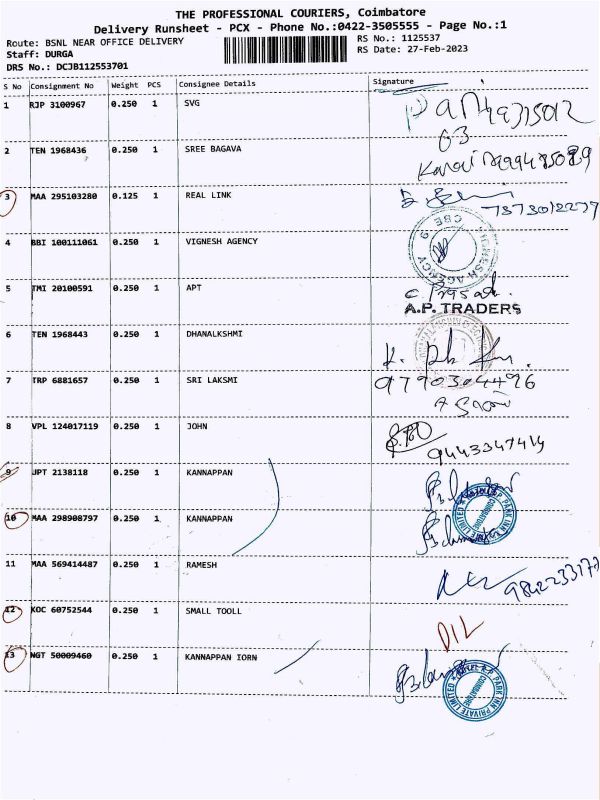 THE PROFESSIONAL COURIERS, Coimbatore
Delivery Runsheet - PCX - Phone No.:0422-3505555 - Page No.:1
Route: BSNL NEAR OFFICE DELIVERY RS No.: 1125537
Staff: DURGA RS Date: 27-Feb-2023
DRS No.: DCJB112553701
S No Consignment No Weight PCS Consignee Details Signature
1 RJP 3100967 0.250 1 SVG
2 TEN 1968436 0.250 1 SREE BAGAVA
3 MAA 295103280 0.125 1 REAL LINK
4 BBI 100111061 0.250 1 VIGNESH AGENCY
5 TMI 20100591 0.250 1 APT
C Prasad
A.P. TRADERS
6 TEN 1968443 0.250 1 DHANALKSHMI
7 TRP 6881657 0.250 1 SRI LAKSMI
9790304496
8 VPL 124017119 0.250 1 JOHN
9443347414
9 JPT 2138118 0.250 1 KANNAPPAN
10 MAA 298908797 0.250 1 KANNAPPAN
11 MAA 569414487 0.250 1 RAMESH
12 KOC 60752544 0.250 1 SMALL TOOLL
D/L
13 NGT 50009460 0.250 1 KANNAPPAN IORN
A.P. PARK INN PRIVATE LIMITED
COIMBATORE